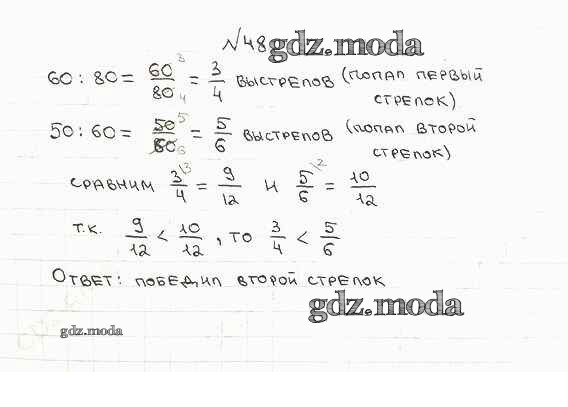 №48 gdz.moda
60 : 80 = 60/80 = 3/4 выстрелов (попал первый
стрелок)
50 : 60 = 50/60 = 5/6 выстрелов (попал второй
стрелок)
Сравним 3/4 = 9/12 и 5/6 = 10/12
Т.К. 9/12 < 10/12, то 3/4 < 5/6
Ответ: победил второй стрелок
gdz.moda
gdz.moda